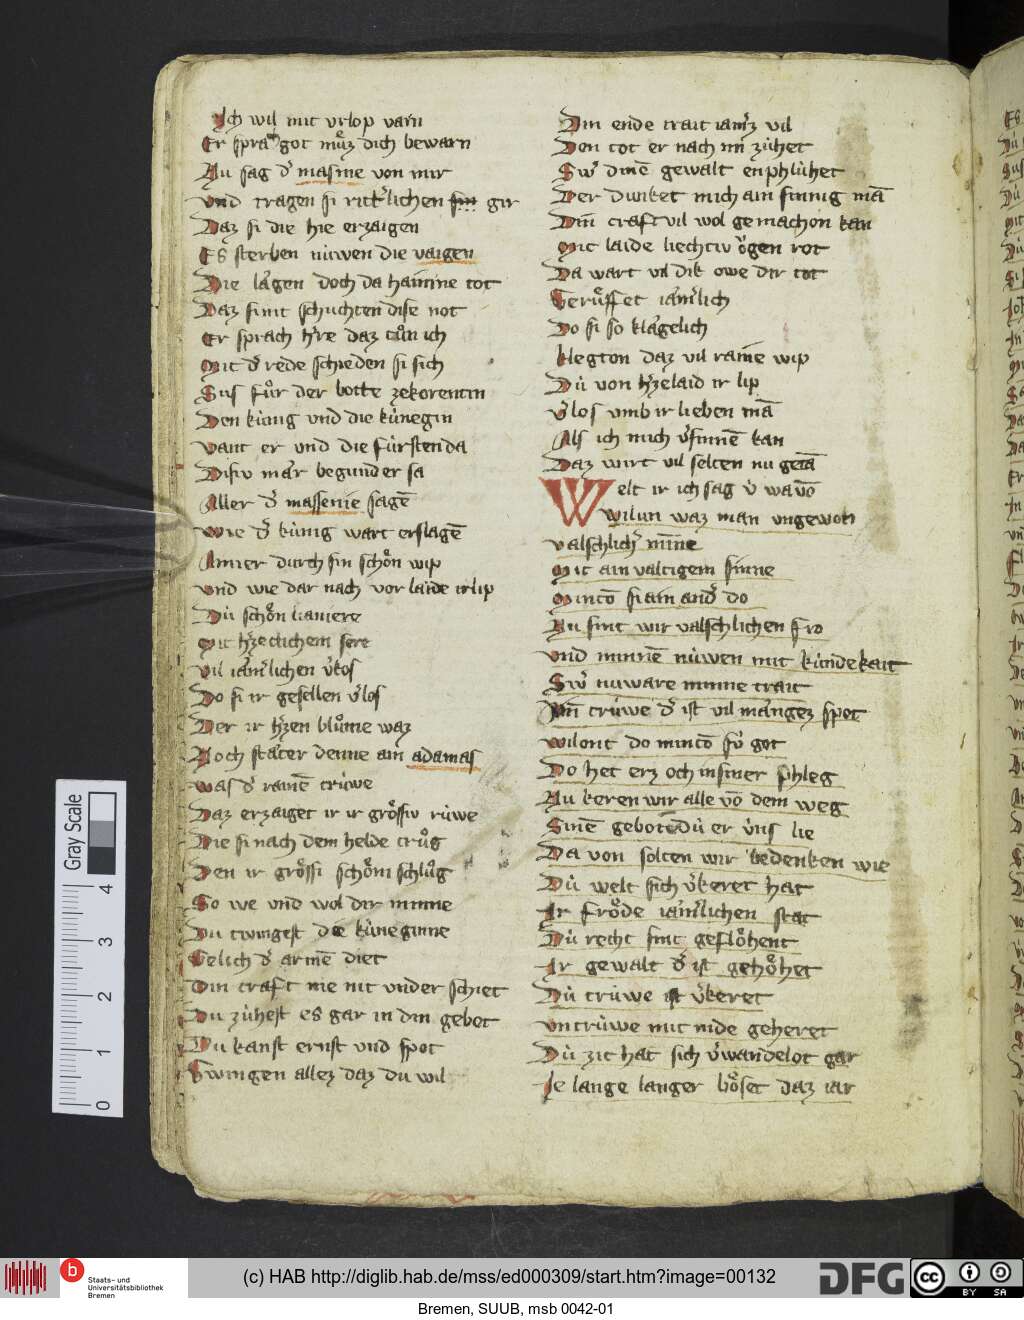 Ich wil mit vrlop varn
Er sprach got mu̍z dich bewarn
Nu sag d͛ masine von mir
vnd tragen si rick͛lichen sin gir
Daz si die hie erzaigen
Es sterben nüwen die vaigen
Die lagen doch da haimme tot
Daz simt schuchten dise not
Er sprach h͛re daz tuͦn ich
Mit d͛ rede schieden si sich
Sus fuͦr der botte zekorentin
Den künig vnd die künegin
vant er vnd die fürsten da
Disiv mar begund er sa
Aller d͛ massenie sagē
wie d͛ künig wart erslagē
Amier durch sin schoͤn wip
vnd wie dar nach vor laide ir lip
Dü schoͤn lianiere
mit h͛zeclichem sere
vil iam͛lichen v͛kos
Do si ir gesellen v͛los
Der ir h͛zen bluͦme waz
Noch stäter denne ain adamas
was d͛ rainē trüwe
Daz erzaiget ir ir groͤssiv rüwe
Die si nach dem helde truͦg
Den ir groͤssi schoͤni schluͦg
So we vnd wol dir minne
Du twingest die küneginne
Gelich d͛ armē diet
Din craft nie nit vnder schiet
Du zühest es gar in din gebet
Du kanst ernst vnd spot
Twingen allez daz du wil
Din ende trait iam͛z vil
Den tot er nach im zühet
Sw͛ dinē gewalt enphlühet
Der dunket mich ain sinnig mā
Din craft vil wol gemachon kan
Mit laide liechtiv oͮgen rot
Da wart vil dik owe dir tot
Geruͤffet iam͛lich
Do si so klagelich
klegton daz vil raine wip
Dü von h͛zelaid ir lip
v͛los vmb ir lieben mā
Als ich mich v͛sinnē kan
Daz wirt vil selten nu getā
Welt ir ich sag ü wavō
wilun waz man vngewon
valschlich͛ minne
Mit ain valtigem sinne
Mintō si ain and͛ do
Nu sint wir valschlichen fro
vnd minnē nüwen mit kündekait
Sw͛ nuware minne trait
Mit trüwe d͛ ist vil mangez spot
wilont do mintō fü got
Do het erz och in siner phleg
Nu keren wir alle vō dem weg
Sinē gebote dü er üns lie
Da von solten wir bedenken wie
Dü welt sich v͛keret hat
Ir froͤde iam͛lichen stat
Dü recht sint gefloͤhent
Ir gewalt d͛ ist gehoͤhet
Dü trüwe ist v͛keret
vntrüwe mit nide geheret
Dü zit hat sich v͛wandelot gar
Ie lange langer boͤset daz iar
Gray Scale
4
3
2
1
0
b
Staats- und
Universitätsbibliothek
Bremen
(c) HAB http://diglib.hab.de/mss/ed000309/start.htm?image=00132
DFG
cc
BY
SA
Bremen, SUUB, msb 0042-01